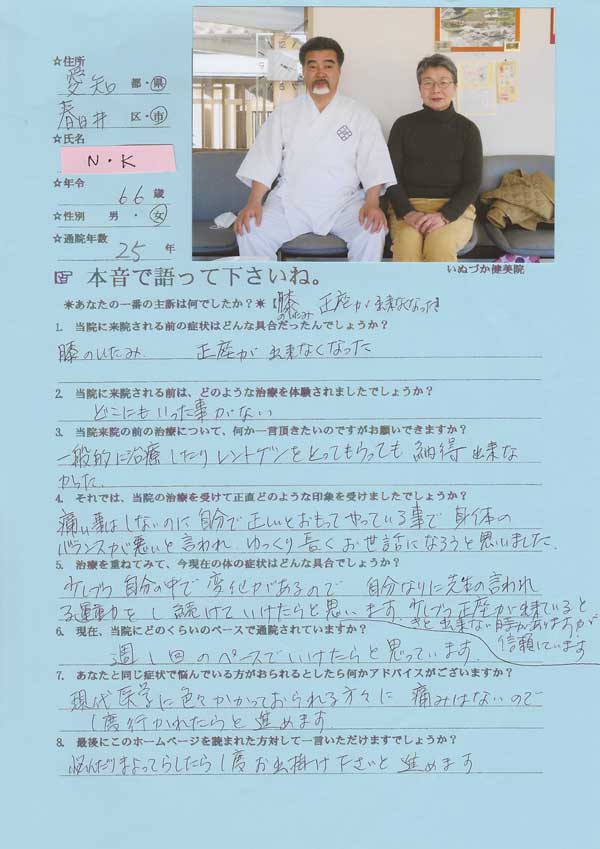 ☆住所
愛知 都・県
春日井 区・市
☆氏名
N・K
☆年令
66 歳
☆性別 男・女
☆通院年数
25 年
いぬづか健美院
☞ 本音で語って下さいね。
＊あなたの一番の主訴は何でしたか？＊【膝のいたみ 正座が出来なくなった】
1. 当院に来院される前の症状はどんな具合だったんでしょうか？
膝のいたみ. 正座が出来なくなった
2. 当院に来院される前は、どのような治療を体験されましたでしょうか？
どこにもいった事がない
3. 当院来院の前の治療について、何か一言頂きたいのですがお願いできますか？
一般的に治療したりレントゲンをとってもらっても 納得出来な
かった.
4. それでは、当院の治療を受けて正直どのような印象を受けましたでしょうか？
痛い事はしないのに 自分で正しいとおもってやっている事で 身体の
バランスが悪いと言われ ゆっくり長くお世話になろうと思いました.
5. 治療を重ねてみて、今現在の体の症状はどんな具合でしょうか？
少しづつ 自分の中で 変化があるので 自分なりに先生の言われ
る運動をし続けていけたらと思います 少しづつ正座が出来ていると
きと出来ない時がありますが
信頼しています
6. 現在、当院にどのくらいのペースで通院されていますか？
週1回のペースでいけたらと思っています
7. あなたと同じ症状で悩んでいる方がおられるとしたら何かアドバイスがございますか？
現代医学に色々かかっておられる方々に 痛みはないので
1度行かれたらと進めます
8. 最後にこのホームページを読まれた方対して一言いただけますでしょうか？
悩んだりまよってらしたら1度お出掛け下さいと進めます